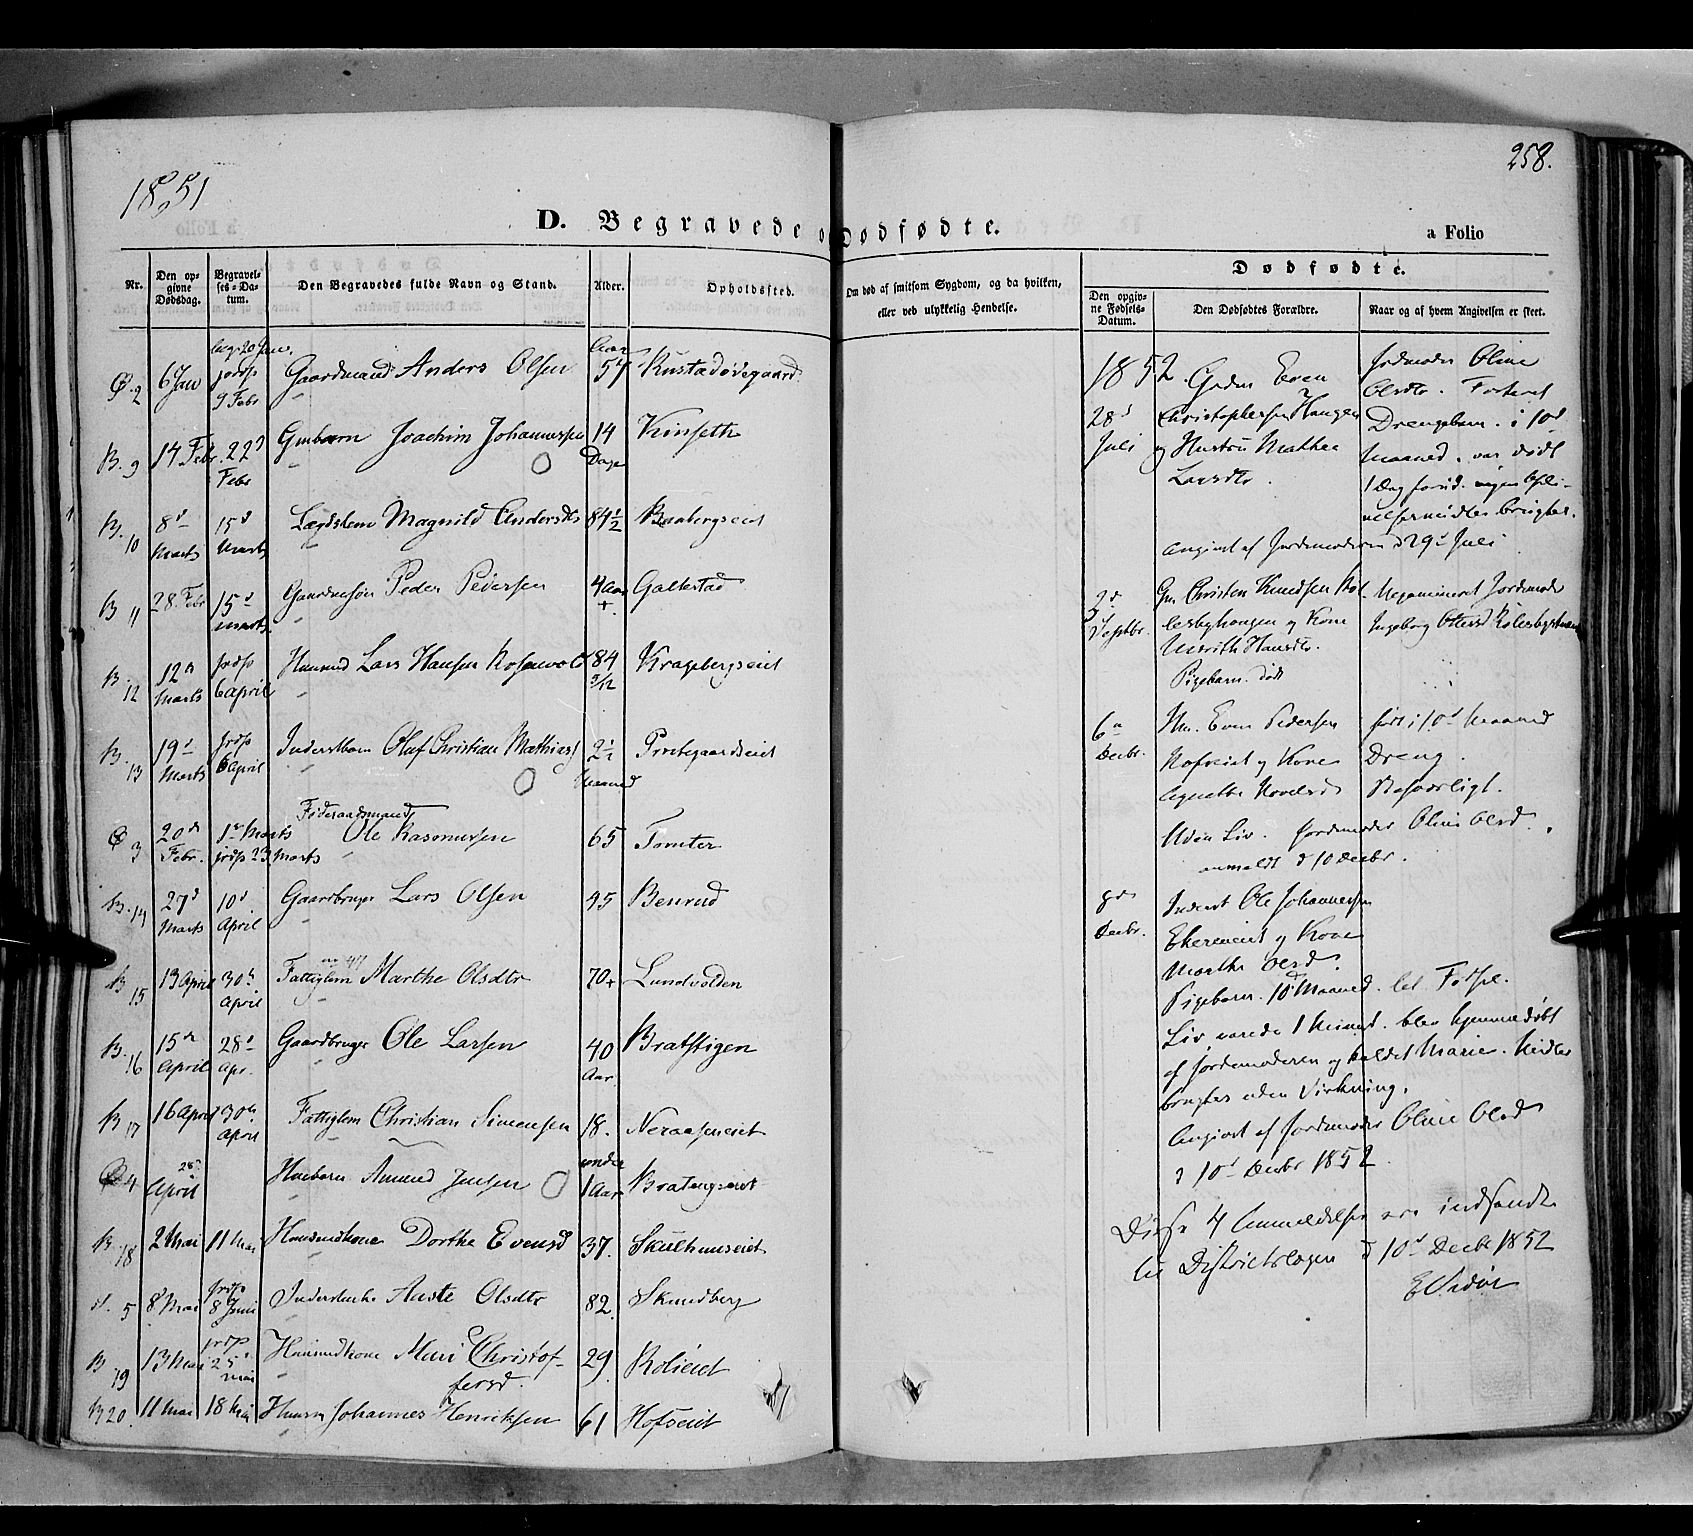 258.
1851
D. Begravede o Dødfødte.
a Folio
Nr. Den opgivne Dødsdag. Begravelses-Datum. Den Begravedes fulde Navn og Stand. Alder. Opholdssted. Om død af smitsom Sygdom, og da hvilken, eller ved ulykkelig Hendelse.
Dødfødte.
Den opgivne Fødsels-Datum. Den Dødfødtes Forældre. Naar og af hvem Angivelsen er skeet.
Ø. 2 6 Jan begr 20 Jan. jordp 9 Febr Gaardmand Anders Olsen Aar 57 Rustadødegaard
B. 9 14 Febr. 22d Febr Gmbarn Joachim Johannesen 14 Dage Kinseth
B. 10 8d Marts 15d Marts Lægdslem Magnild Andersdtr 84½ Braabergseiet
B 11 28 Febr 15d Marts Gaardmsøn Peder Pedersen 4 Aar + Galterstad
B. 12 12te Marts jordp 6 April Huusmd Lars Hansen Rosenvold 84 5/12 Kragebergseiet
B. 13 19d Marts jordp 6 April Inderstbarn Oluf Christian Mathias 2½ Maaned Prestegaardseiet
Ø 3 20de Febr. 1ste Marts jordp 23 Marts Føderaadsmand Ole Rasmussen 65 Tomter
B. 14 27d Marts 10d April Gaardbruger Lars Olsen 45 Benrud
B 15 13 April 30te April Fattiglem Marthe Olsdtr 70+ Lundvolden
B. 16 15de April 28d Apr. Gaardbruger Ole Larsen 40 Aar Bratstigen
B 17 16 April 30te April Fattiglem Christian Simensen 18. Neraaseneiet
Ø 4 28d April Huusbarn Amund Jensen under 1 Aar Bratengseiet
B. 18 2 Mai 11 Mai Huusmdkone Dorthe Evensd 37. Skulhuuseiet
5 8 Mai jordp 8 Juni Inderstenke Anste Olsdtr 82. Skundberg
B 19 13 Mai jordp 25d Mai Huusmdkone Mari Christof-
fersd. 29. Rolieiet
B 20. 11 Mai 18 Mai Huusm Johannes Henriksen 61 Hofseiet
1852.
28d Juli
Gmd Even
Christophersen Haugen
og Hustru Mathea
Larsdtr.
Jordmoder Oline
Olsdtr. Fosteret
Drengebarn. i 10d
Maaned. var dødt
1 Dag forud. ingen Opli-
velsesmidler brugtes.
Angivet af Jordemoderen d 29d Juli
2d Septbr.
Gm Christen Knudsen Kol-
lesbyhaugen og Kone
Marith Hansdtr.
Pigebarn. dødt
Uexamineret Jordmoder
Ingeborg Ottersd Kolesbystuen
6te Decbr.
Hm. Even Pedersen
Hofseiet og Kone
Agnethe Hovelsd
Uden Liv. Jordmoder Oline Olsd.
anmeldt d 10 Decbr.
født i 10d Maaned
Dreng.
Besværligt.
8de Decbr.
Inderst Ole Johannesen
Ekerneiet og Kone
Marthe Olsd.
Pigebarn. 10d Maaned. let Fødsel.
Liv varede 1 Minut. blev hjemmedøbt
af Jordemoderen og kaldet Marie. Midler
brugtes uden Virkning.
Angivet af Jordmoder Oline Olsd
d 10d Decbr 1852.
Disse 4 Anmeldelser ere indsendte
til Districtslægen d 10d Decbr 1852